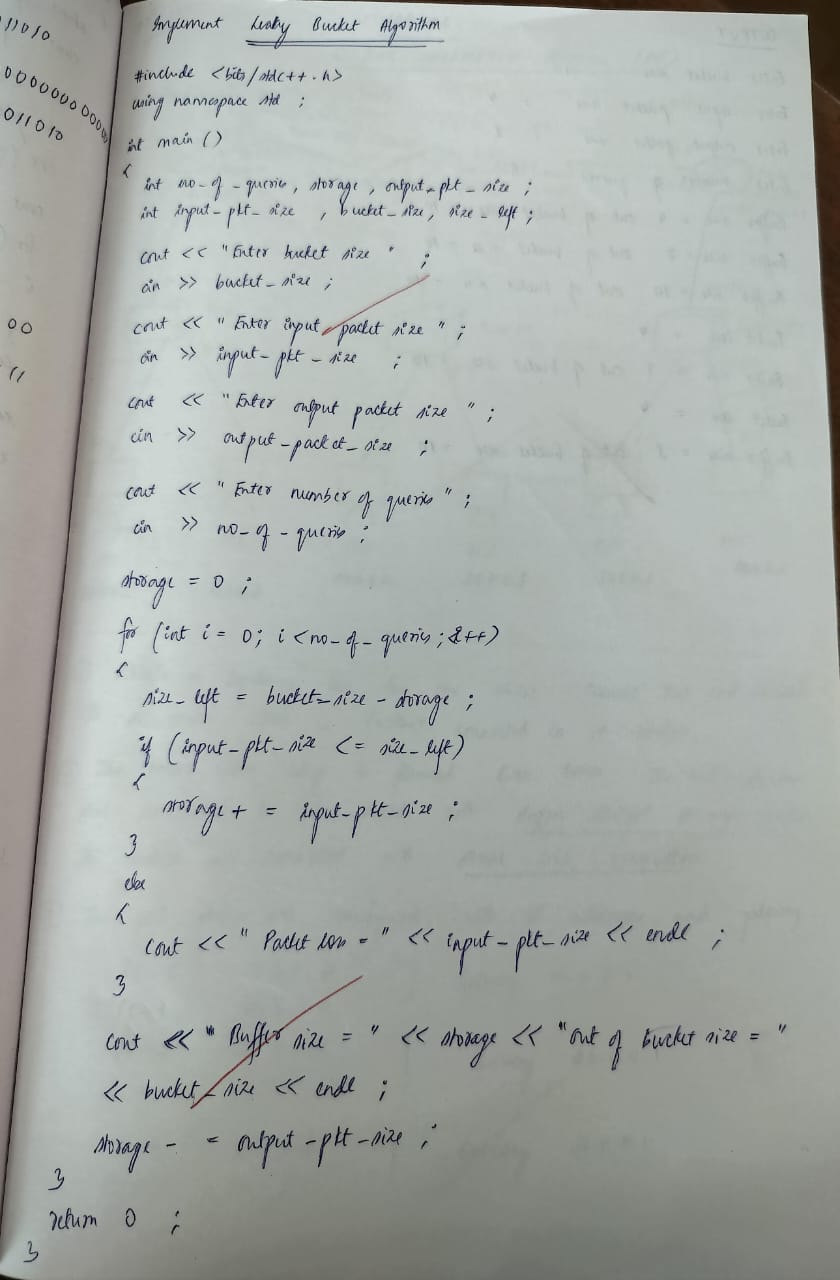 11010
000000000000
011010
00
11
Implement Leaky Bucket Algorithm
#include <bits/stdc++.h>
using namespace std ;
int main ()
{
int no-of-queries, storage, output-pkt-size ;
int input-pkt-size , bucket-size, size-left ;
cout << "Enter bucket size " ;
cin >> bucket-size ;
cout << " Enter input packet size " ;
cin >> input-pkt-size ;
cout << " Enter output packet size " ;
cin >> output-packet-size ;
cout << " Enter number of queries " ;
cin >> no-of-queries ;
storage = 0 ;
for (int i = 0; i < no-of-queries ; i++)
{
size-left = bucket-size - storage ;
if (input-pkt-size <= size-left)
{
storage + = input-pkt-size ;
}
else
{
cout << " Packet loss = " << input-pkt-size << endl ;
}
cout << " Buffer size = " << storage << "out of bucket size = "
<< bucket-size << endl ;
storage - = output-pkt-size ;
}
return 0 ;
}